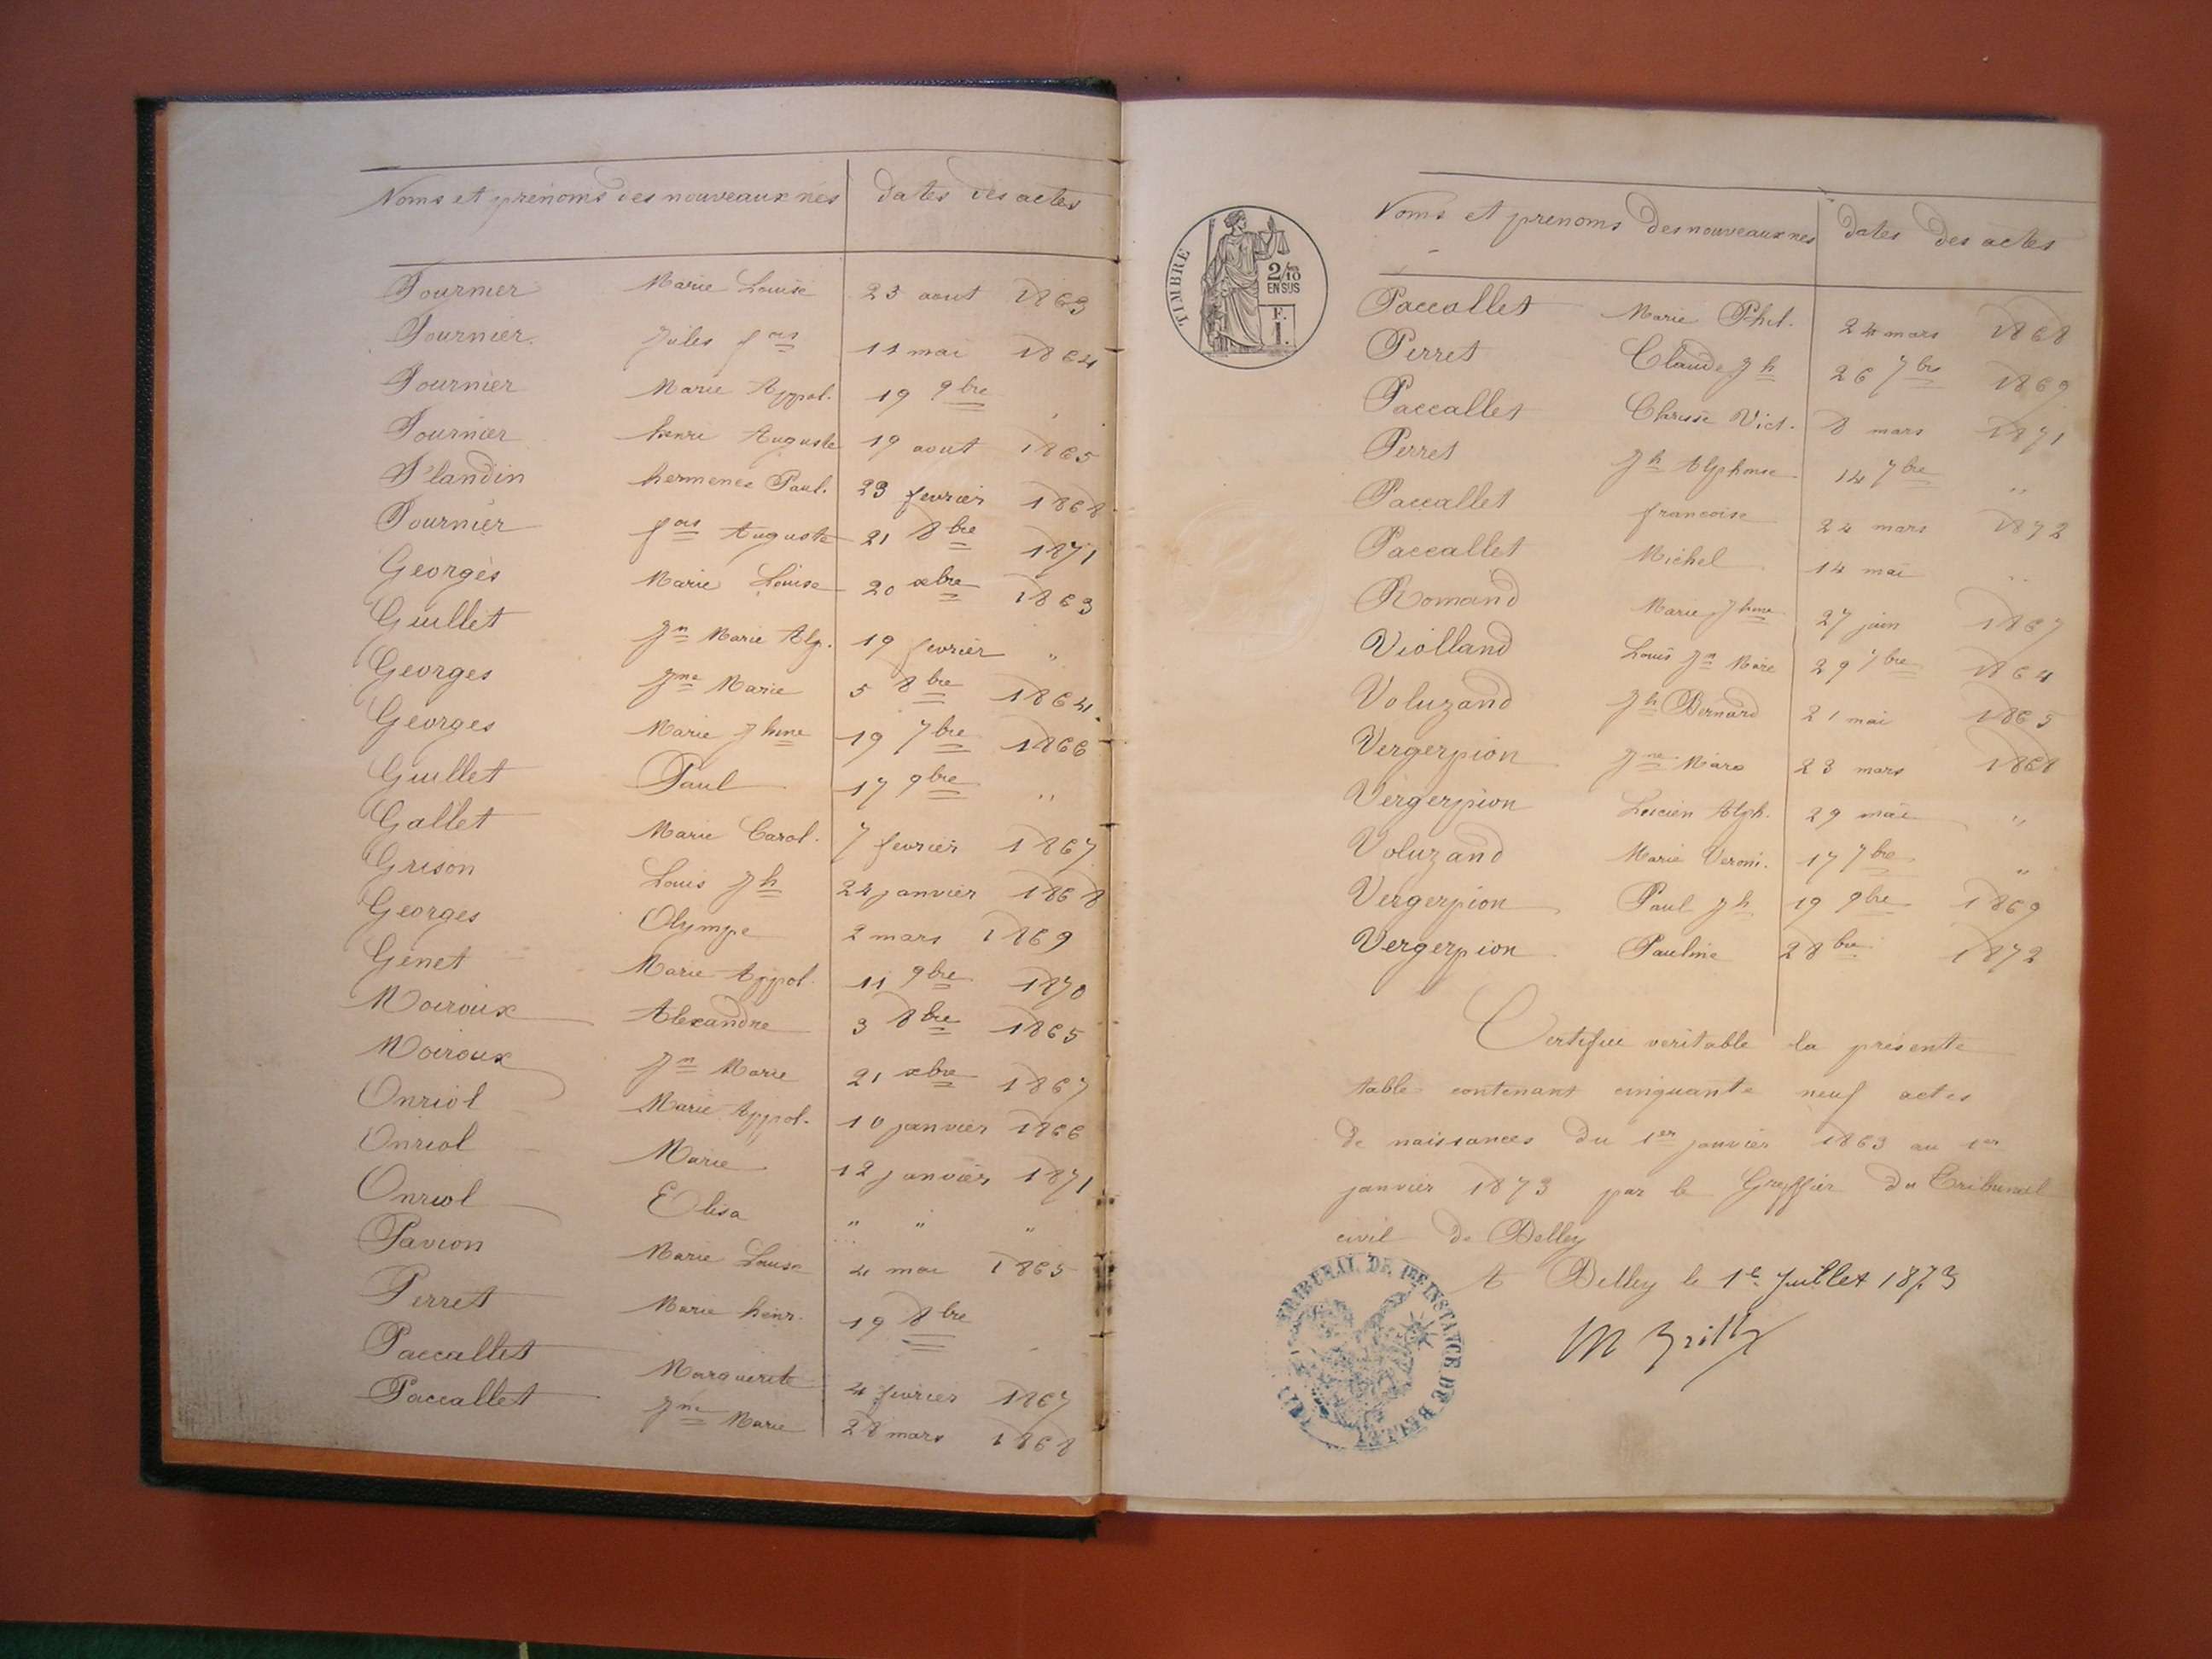 Noms et prénoms des nouveaux nés dates des actes
Fournier Marie Louise 23 aout 1863
Fournier Jules fois 11 mai 1864
Fournier Marie Appol. 19 9bre "
Fournier henri Auguste 19 aout 1865
Flandin hermence Paul. 23 fevrier 1868
Fournier fois Auguste 21 8bre 1871
Georges Marie Louise 20 xbre 1863
Guillet Jn Marie Alp. 19 fevrier "
Georges Jne Marie 5 8bre 1864
Georges Marie Jhine 19 7bre 1866
Guillet Paul 17 9bre "
Gallet Marie Carol. 7 fevrier 1867
Grison Louis Jh 24 janvier 1868
Georges Olympe 2 mars 1869
Genet Marie Appol. 11 9bre 1870
Moiroux Alexandre 3 8bre 1865
Moiroux Jn Marie 21 xbre 1867
Onriol Marie Appol. 10 janvier 1866
Onriol Marie 12 janvier 1871
Onriol Elisa " " "
Pavion Marie Louise 4 mai 1865
Perret Marie henr. 19 8bre
Paccallet Marguerite 4 fevrier 1867
Paccallet Jne Marie 28 mars 1868
TIMBRE
2/10
EN SUS
F.
1.
Noms et prenoms des nouveaux nes dates des actes
Paccallet Marie Phil. 24 mars 1868
Perret Claude Jh 26 7bre 1869
Paccallet Chrisse Vict. 8 mars 1871
Perret Jh Alphonse 14 7bre "
Paccallet francoise 24 mars 1872
Paccallet Michel 14 mai "
Romand Marie Jhine 27 juin 1867
Violland Louis Jn Marie 29 7bre 1864
Voluzand Jh Bernard 21 mai 1865
Vergerpion Jne Marie 23 mars 1868
Vergerpion Lucien Alph. 29 mai "
Voluzand Marie Veroni. 17 7bre "
Vergerpion Paul Jh 19 9bre 1869
Vergerpion Pauline 2 8bre 1872
Certifiee veritable la présente
table contenant cinquante neuf actes
de naissances du 1er janvier 1863 au 1er
janvier 1873 par le Greffier du Tribunal
civil de Belley
A Belley le 1er Juillet 1873
TRIBUNAL DE 1ERE INSTANCE DE BELLEY